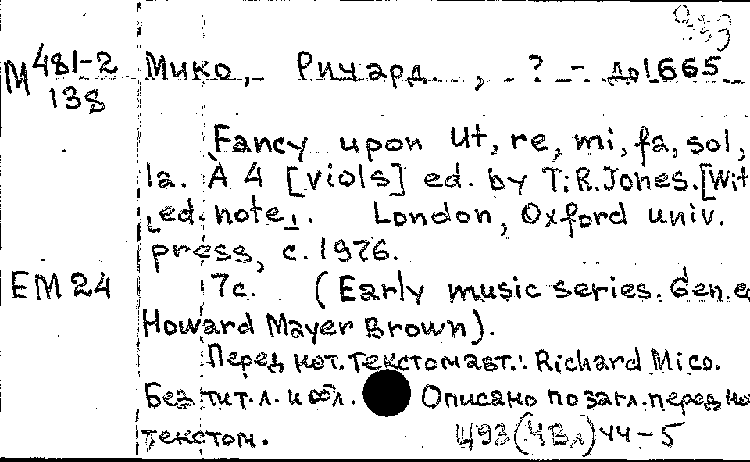 993
М 481-2
138
Мико, Ричард, ? - до 1665
Fancy upon Ut, re, mi, fa, sol,
la. À 4 [viols] ed. by T.R.Jones. [Wit
ed. note]. London, Oxford univ.
press, c. 1976.
ЕМ 24
7с. (Early music series. Gen. e
Howard Mayer Brown).
Перед нот. текстом авт.: Richard Mico.
Без тит. л. и обл. Описано по загл. перед но
текстом.
Ц93(4Вл)44-5